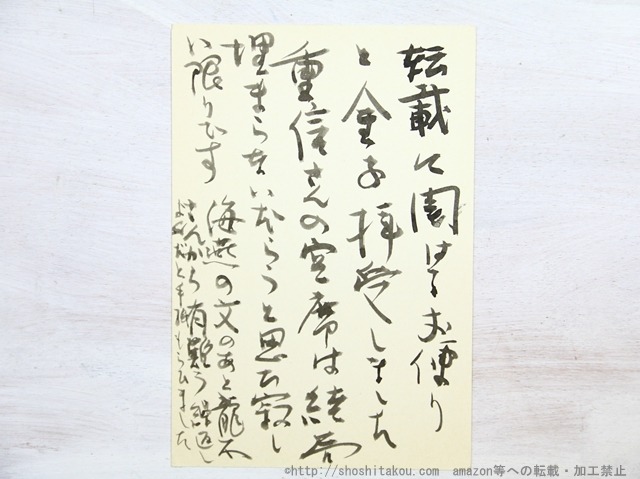 転載に関するお便り
と金子拝受しました
重信さんの空席は結局
埋まらないだらうと思ひ寂し
い限りです
海燕の文のあと龍太
さんから有難う 繰返し
よんだと手紙もらひました
©http://shoshitakou.com amazon等への転載・加工禁止